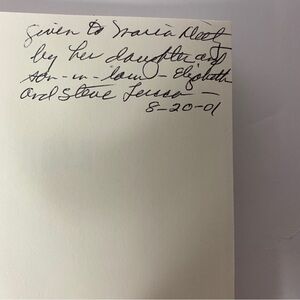 given to Maria
by her daughter and
son-in-law - Elizabeth
and Steve —
8-20-01